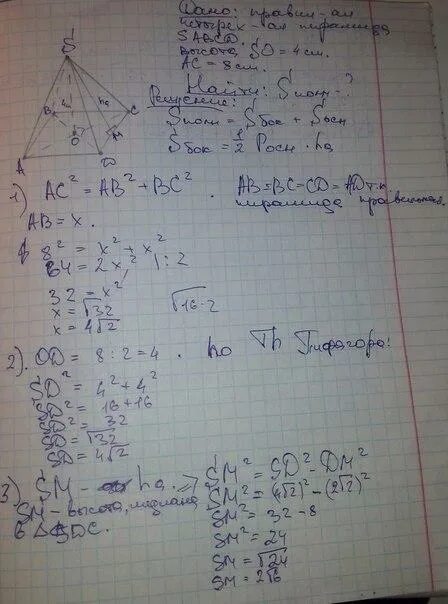 Дано: правил-ая
четырех-ая пирамида
SABCD.
высота SO = 4 см.
AC = 8 см.
Найти: Sполн - ?
Решение:
Sполн = Sбок + Sосн
Sбок = 1/2 Pосн · ha
S
4см
ha
B
C
M
O
A
D
1) AC² = AB² + BC². AB=BC=CD=AD т.к. пирамида правильная.
AB = x.
8² = x² + x²
64 = 2x² | : 2
32 = x²
x = √32 √16·2
x = 4√2
2). OD = 8 : 2 = 4. по Th Пифагора:
SD² = 4² + 4²
SD² = 16 + 16
SD² = 32
SD = √32
SD = 4√2
3) SM - ha =>
SM - высота, медиана
в △SDC.
SM² = SD² - DM²
SM² = (4√2)² - (2√2)²
SM² = 32 - 8
SM² = 24
SM = √24
SM = 2√6